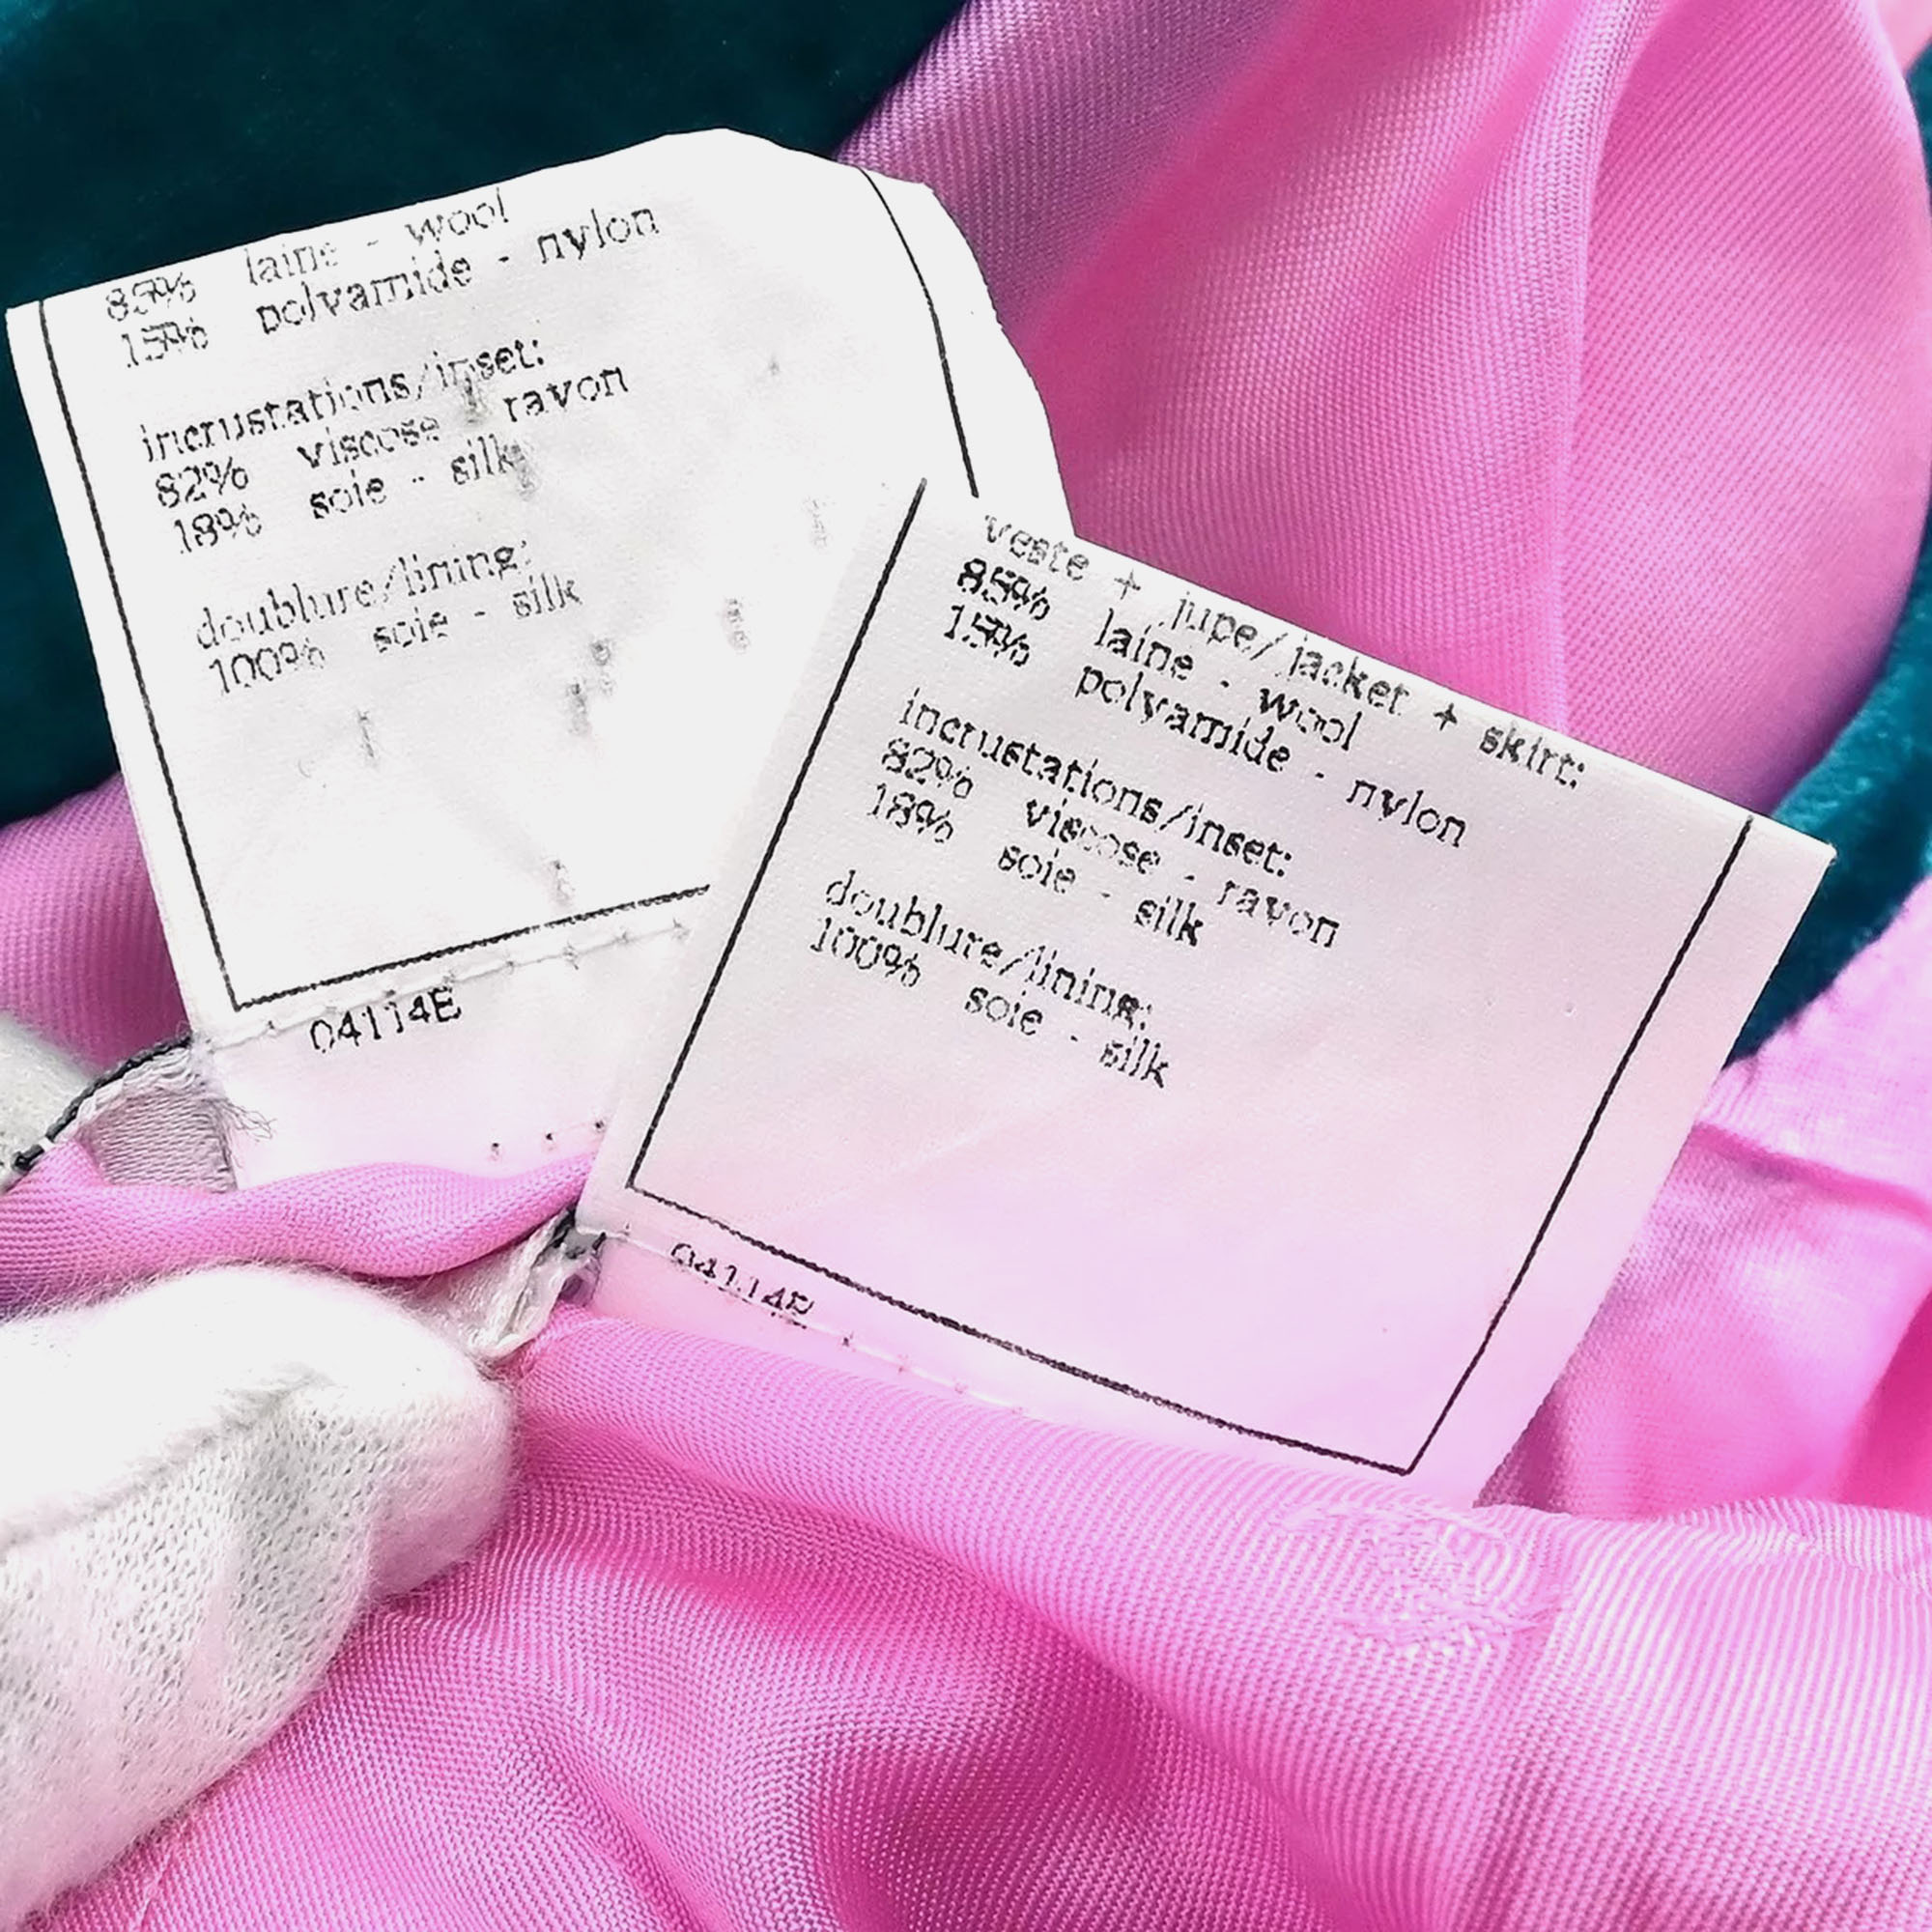 85% laine - wool
15% polyamide - nylon
incrustations/inset:
82% viscose - rayon
18% soie - silk
doublure/lining:
100% soie - silk
04114E
veste + jupe/jacket + skirt:
85% laine - wool
15% polyamide - nylon
incrustations/inset:
82% viscose - rayon
18% soie - silk
doublure/lining:
100% soie - silk
04114E